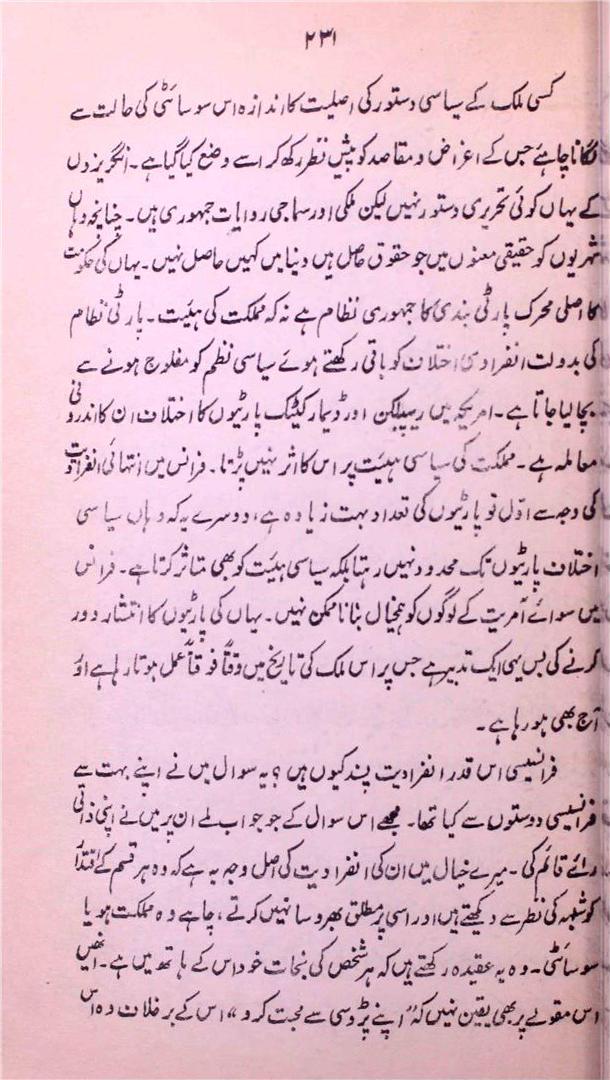 ۲۳۱
کسی ملک کے سیاسی دستور کی اصلیت کا اندازہ اس سوسائٹی کی حالت سے
لگانا چاہئے جس کے اغراض و مقاصد کو پیش نظر رکھ کر اسے وضع کیا گیا ہے۔ انگریزوں
کے یہاں کوئی تحریری دستور نہیں لیکن ملکی اور سماجی روایات جمہوری ہیں۔ چنانچہ وہاں
شہریوں کو حقیقی معنوں میں جو حقوق حاصل ہیں دنیا میں کہیں حاصل نہیں۔ یہاں کی حکومت
کا اصلی محرک پارٹی بندی کا جمہوری نظام ہے نہ کہ مملکت کی ہیئت۔ پارٹی نظام
کی بدولت انفرادی اختلاف کو باقی رکھتے ہوئے سیاسی نظم کو مفلوج ہونے سے
بچا لیا جاتا ہے۔ امریکہ میں ریپبلکن اور ڈیماکریٹک پارٹیوں کا اختلاف ان کا اندرونی
معاملہ ہے۔ مملکت کی سیاسی ہیئت پر اس کا اثر نہیں پڑتا۔ فرانس میں انتہائی انفرادیت
کی وجہ سے اوّل تو پارٹیوں کی تعداد بہت زیادہ ہے، دوسرے یہ کہ وہاں سیاسی
اختلاف پارٹیوں تک محدود نہیں رہتا بلکہ سیاسی ہیئت کو بھی متاثر کرتا ہے۔ فرانس
میں سوائے آمریت کے لوگوں کو ہمخیال بنانا ممکن نہیں۔ یہاں کی پارٹیوں کا انتشار دور
کرنے کی بس یہی ایک تدبیر ہے جس پر اس ملک کی تاریخ میں وقتاً فوقتاً عمل ہوتا رہا ہے اور
آج بھی ہو رہا ہے۔
فرانسیسی اس قدر انفرادیت پسند کیوں ہیں؟ یہ سوال میں نے اپنے بہت سے
فرانسیسی دوستوں سے کیا تھا۔ مجھے اس سوال کے جو جواب ملے ان پر میں نے اپنی ذاتی
رائے قائم کی۔ میرے خیال میں ان کی انفرادیت کی اصل وجہ یہ ہے کہ وہ ہر قسم کے اقتدار
کو شبہہ کی نظر سے دیکھتے ہیں اور اس پر مطلق بھروسا نہیں کرتے، چاہے وہ مملکت ہو یا
سوسائٹی۔ وہ یہ عقیدہ رکھتے ہیں کہ ہر شخص کی نجات خود اس کے ہاتھ میں ہے۔ انھیں
اس مقولے پر بھی یقین نہیں کہ "اپنے پڑوسی سے محبت کرو" اس کے برخلاف وہ اس